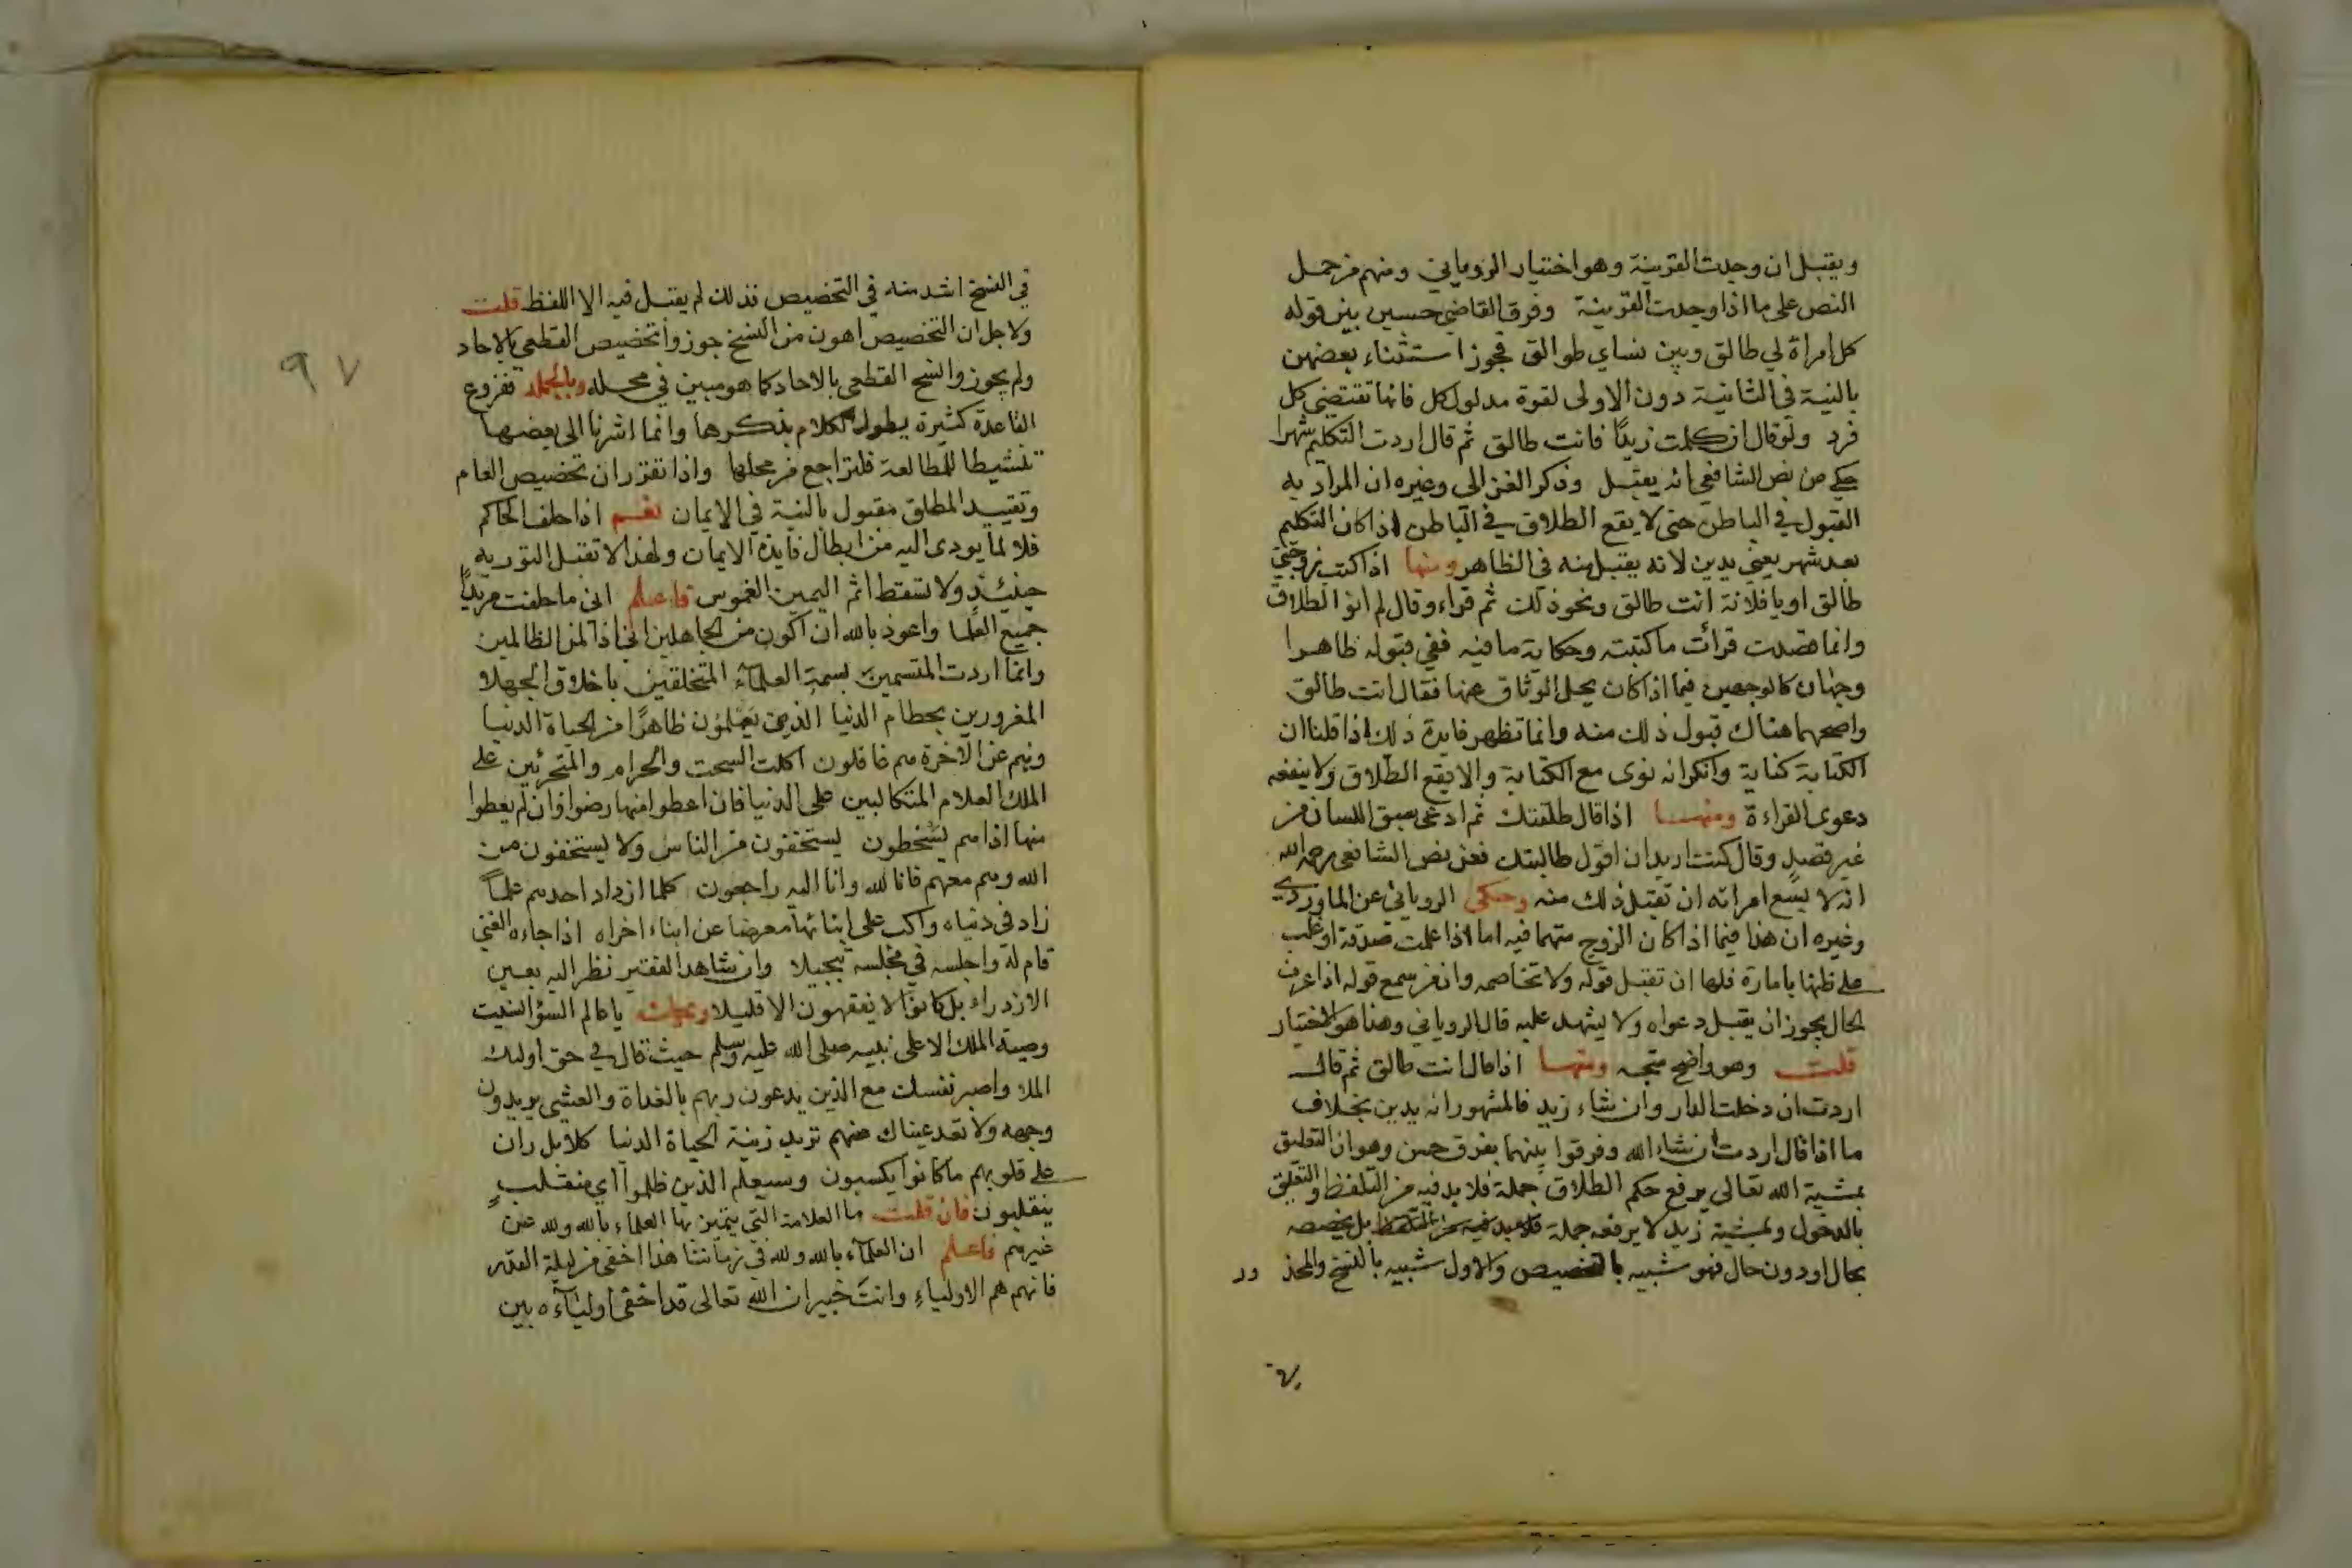 ويقبل ان وجدت القرينة وهو اختيار الروياني ومنهم من حمل
النص على ما اذا وجدت القرينة وفرق القاضي حسين بين قوله
كل امراة لي طالق وبين نساي طوالق فجوز استثناء بعضهن
بالنية في الثانية دون الاولى لقوة مدلول كل فانها تقتضي كل
فرد ولو قال ان كلمت زيدًا فانت طالق ثم قال اردت التكليم شهرا
حكي من نص الشافعي انه يقبل وذكر الغزالي وغيره ان المراد به
القبول في الباطن حتى لا يقع الطلاق في الباطن اذا كان التكليم
بعد شهر يعني يدين لانه يقبل منه في الظاهر ومنها اذا كتب زوجتي
طالق او يا فلانة انت طالق ونحو ذلك ثم قراه وقال لم انو الطلاق
وانما قصدت قرائت ما كتبته وحكاية ما فيه ففي قبوله ظاهرا
وجهان كالوجهين فيما اذا كان يحل الوثاق عنها فقال انت طالق
واصحهما هناك قبول ذلك منه وانما تظهر فايدة ذلك اذا قلنا ان
الكتابة كناية وانكر انه نوى مع الكتابة والا يقع الطلاق ولا ينفعه
دعوى القراءة ومنها اذا قال طلقتك ثم ادعى سبق اللسان من
غير قصدٍ وقال كنت اريد ان اقول طالبتك فعن نص الشافعي رحمه الله
انه لا يسع امراته ان تقبل ذلك منه وحكى الروياني عن الماوردي
وغيره ان هذا فيما اذا كان الزوج متهما فيه اما اذا علمت صدقه او غلب
على ظنها بامارة فلها ان تقبل قوله ولا تخاصمه وان من سمع قوله اذا عرف
الحال يجوز ان يقبل دعواه ولا يشهد عليه قال الروياني وهذا هو الاختيار
قلت وهو واضح متجه ومنها اذا قال انت طالق ثم قال
اردت ان دخلت الدار وان شاء زيد فالمشهور انه يدين بخلاف
ما اذا قال اردت ان شاء الله وفرقوا بينهما بفرق حسن وهو ان التعليق
بمشية الله تعالى يرفع حكم الطلاق جملة فلا بد فيه من التلفظ والتعليق
بالدخول وبمشية زيد لا يرفعه جملة فلا بد فيه من التلفظ بل يخصصه
بحال اودون حال فهو شبيه بالتخصيص والاول شبيه بالنسخ والمحذ ور
في النسخ اشد منه في التخصيص فذلك لم يقبل فيه الا اللفظ قلت
ولاجل ان التخصيص اهون من النسخ جوزوا تخصيص القطعي بالاحاد
ولم يجوزوا نسخ القطعي بالاحاد كما هو مبين في محله وبالجملة ففروع
القاعدة كثيرة يطول الكلام بذكرها وانما اشرنا الى بعضها
تنشيطا للمطالعة فلتراجع من محلها واذا تقرر ان تخصيص العام
وتقييد المطلق مقبول بالنية في الايمان نعم اذا حلف الحاكم
فلا لما يودى اليه من ابطال فايدة الايمان ولهذا لا تقبل التورية
حينئذٍ ولا تسقط اثم اليمين الغموس فاعلم اني ما حلفت مريدًا
جميع العلما واعوذ بالله ان اكون من الجاهلين اني اذا لمن الظالمين
وانما اردت المتسمين بسمة العلمآء المتخلقين باخلاق الجهلا
المغرورين بحطام الدنيا الذين يَعْلمُون ظاهرًا من الحياة الدنيا
وهم عن الاخرة هم غافلون اكلت السحت والحرام والمتجرئين على
الملك العلام المتكالبين على الدنيا فان اعطوا منها رضوا وان لم يعطوا
منها اذا هم يسْخطون يستخفون من الناس ولا يستخفون من
الله وهو معهم فانا لله وانا اليه راجعون كلما ازداد احدهم علمًا
زاد في دنياه واكب على ابنائها معرضا عن ابناء اخراه اذا جاءه الغني
قام له واجلسه في مجلسه تبجيلا وان شاهد الفقير نظر اليه بعين
الازدراء بل كانوا لا يفقهون الا قليلا ويحك يا عالم السؤ انسيت
وصية الملك الاعلى نبيه صلى الله عليه وسلم حيث قال في حق اولئك
الملا واصبر نفسك مع الذين يدعون ربهم بالغداة والعشي يريدون
وجهه ولا تعد عيناك عنهم تريد زينة الحياة الدنيا كلا بل ران
على قلوبهم ما كانوا يكسبون وسيعلم الذين ظلموا اي منقلبٍ
ينقلبون فان قلت ما العلامة التي يتميز بها العلماء بالله ولله عن
غيرهم فاعلم ان العلمآء بالله ولله في زماننا هذا اخفى من ليلة القدر
فانهم هم الاولياء وانتَ خبير ان الله تعالى قد اخفى اوليآءه بين
٩٧